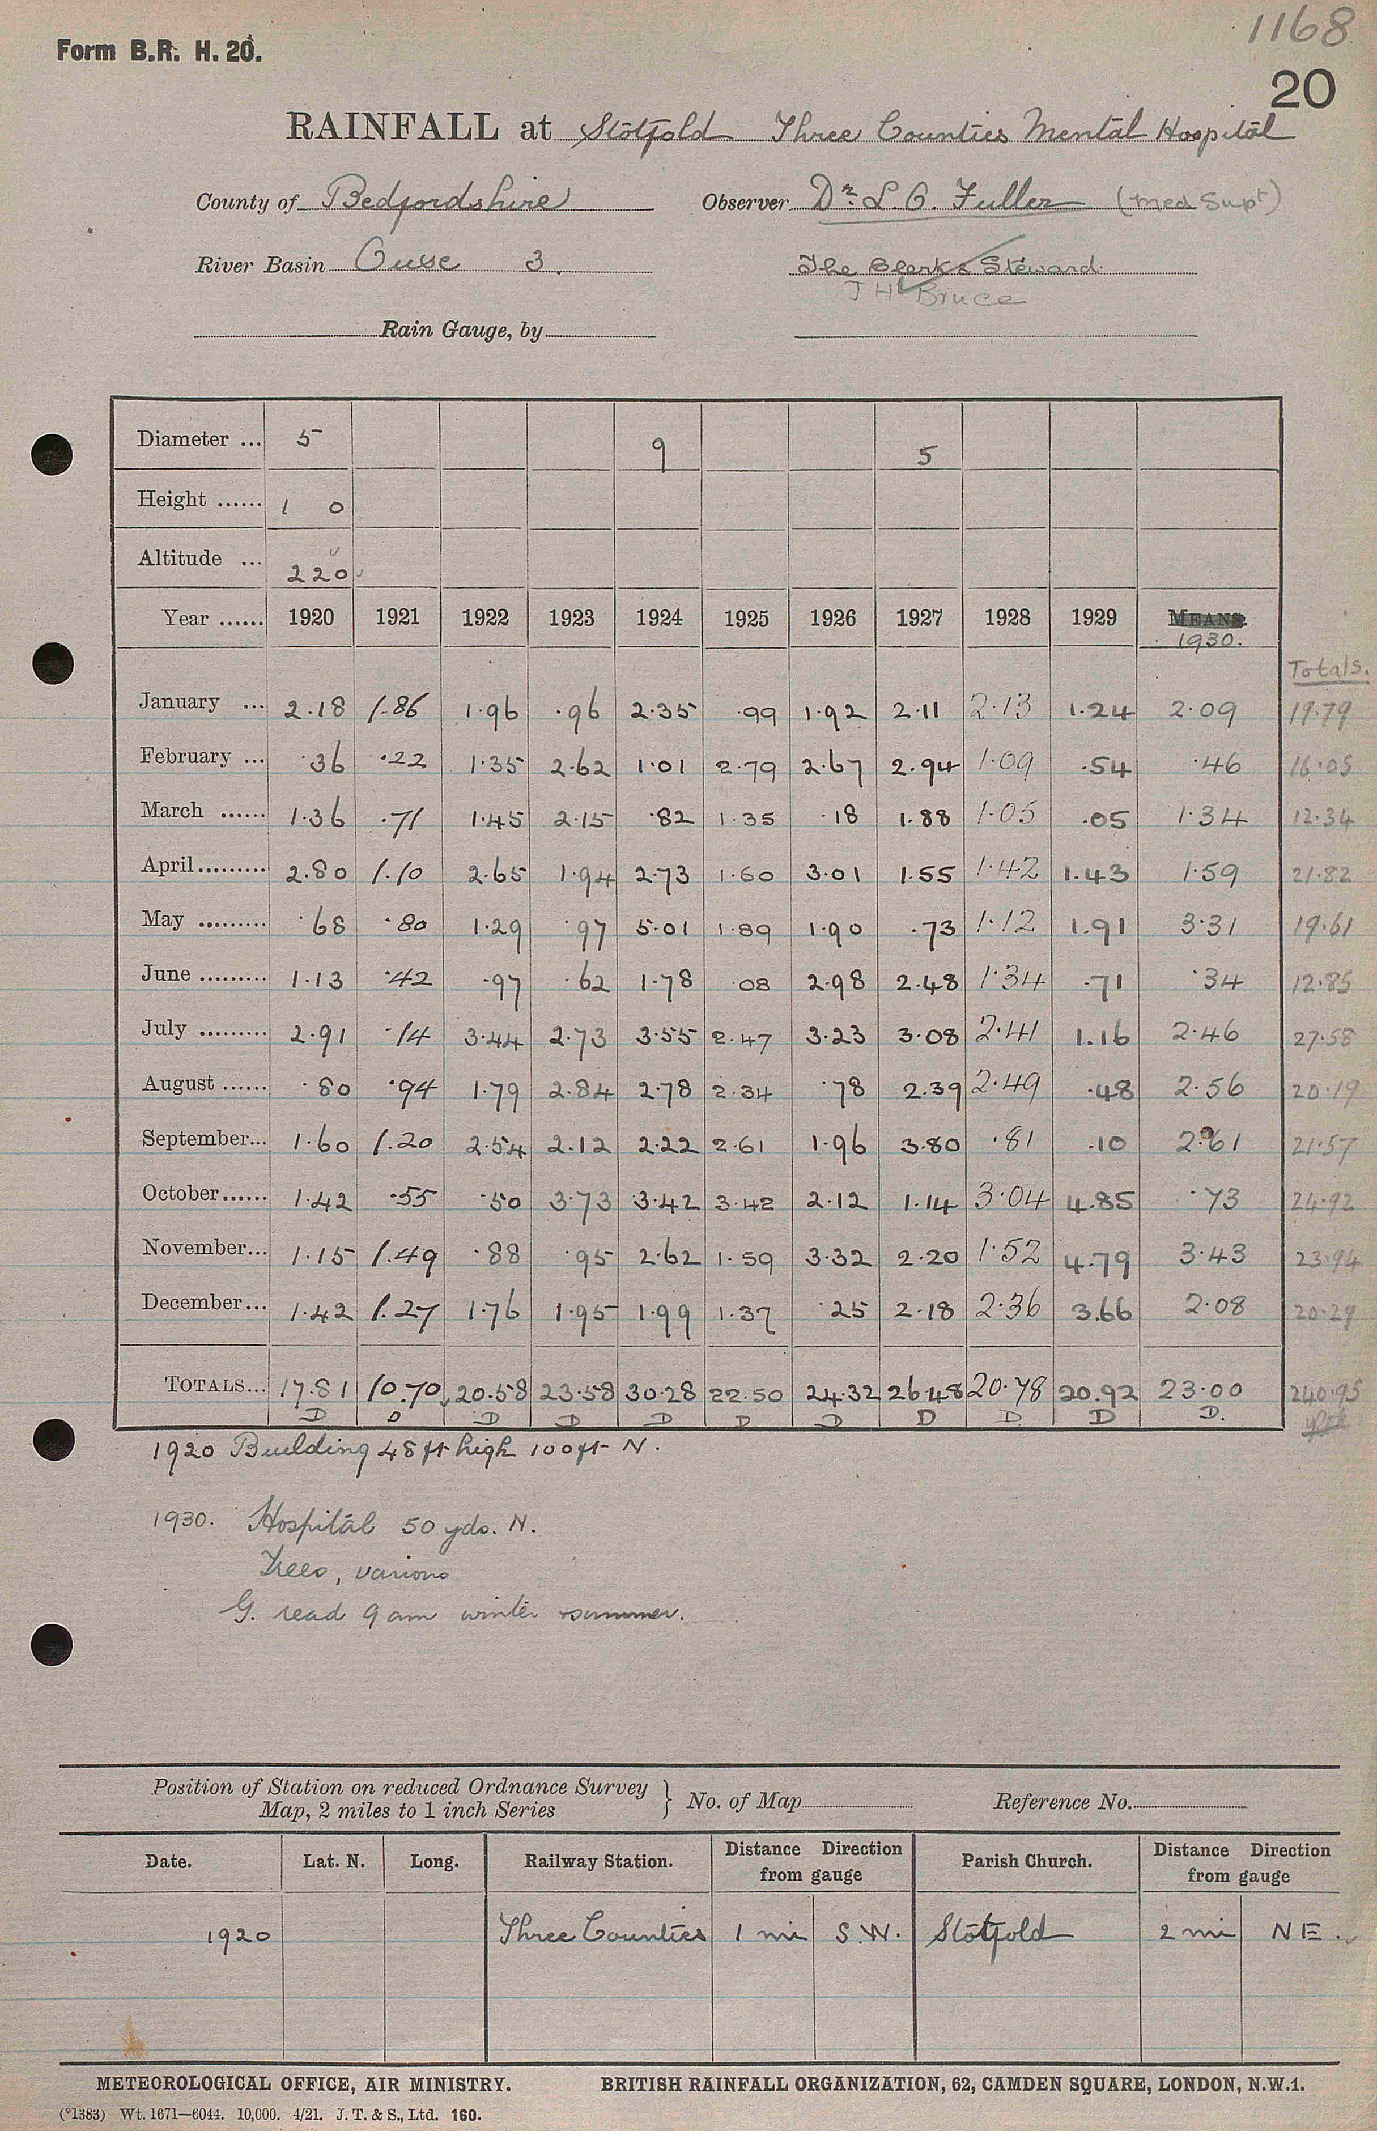 1168
Form B.R. H. 20.
20
RAINFALL at Stotfold Three Counties Mental Hospital
County of Bedfordshire Observer Dr. L O. Fuller (Med Supt)
River Basin Ouse 3. The Clerk & Steward.
J H Bruce
Rain Gauge, by
Diameter ... 5 9 5
Height ...... 1 0
Altitude ... 220
Year ...... 1920 1921 1922 1923 1924 1925 1926 1927 1928 1929 MEANS
1930.
Totals.
January ... 2.18 1.86 1.96 .96 2.35 .99 1.92 2.11 2.13 1.24 2.09 19.79
February ... .36 .22 1.35 2.62 1.01 2.79 2.67 2.94 1.09 .54 .46 16.05
March ...... 1.36 .71 1.45 2.15 .82 1.35 .18 1.88 1.05 .05 1.34 12.34
April ......... 2.80 1.10 2.65 1.94 2.73 1.60 3.01 1.55 1.42 1.43 1.59 21.82
May ......... .68 .80 1.29 .97 5.01 1.89 1.90 .73 1.12 1.91 3.31 19.61
June ......... 1.13 .42 .97 .62 1.78 .08 2.98 2.48 1.34 .71 .34 12.85
July ......... 2.91 .14 3.44 2.73 3.55 2.47 3.23 3.08 2.41 1.16 2.46 27.58
August ...... .80 .94 1.79 2.84 2.78 2.34 .78 2.39 2.49 .48 2.56 20.19
September... 1.60 1.20 2.54 2.12 2.22 2.61 1.96 3.80 .81 .10 2.61 21.57
October...... 1.42 .55 .50 3.73 3.42 3.42 2.12 1.14 3.04 4.85 .73 24.92
November... 1.15 1.49 .88 .95 2.62 1.59 3.32 2.20 1.52 4.79 3.43 23.94
December... 1.42 1.27 1.76 1.95 1.99 1.37 .25 2.18 2.36 3.66 2.08 20.29
TOTALS... 17.81 10.70 20.58 23.58 30.28 22.50 24.32 26.48 20.78 20.92 23.00 240.95
D D D D D D D D D D D.
1920 Building 48 ft high 100 ft N.
1930. Hospital 50 yds. N.
Trees, various
G. read 9 am winter & summer.
Position of Station on reduced Ordnance Survey
Map, 2 miles to 1 inch Series } No. of Map Reference No.
Date. Lat. N. Long. Railway Station. Distance Direction from gauge Parish Church. Distance Direction from gauge
1920 Three Counties 1 mi S.W. Stotfold 2 mi NE.
METEOROLOGICAL OFFICE, AIR MINISTRY. BRITISH RAINFALL ORGANIZATION, 62, CAMDEN SQUARE, LONDON, N.W.1.
(*1383) Wt. 1671—6044. 10,000. 4/21. J. T. & S., Ltd. 160.